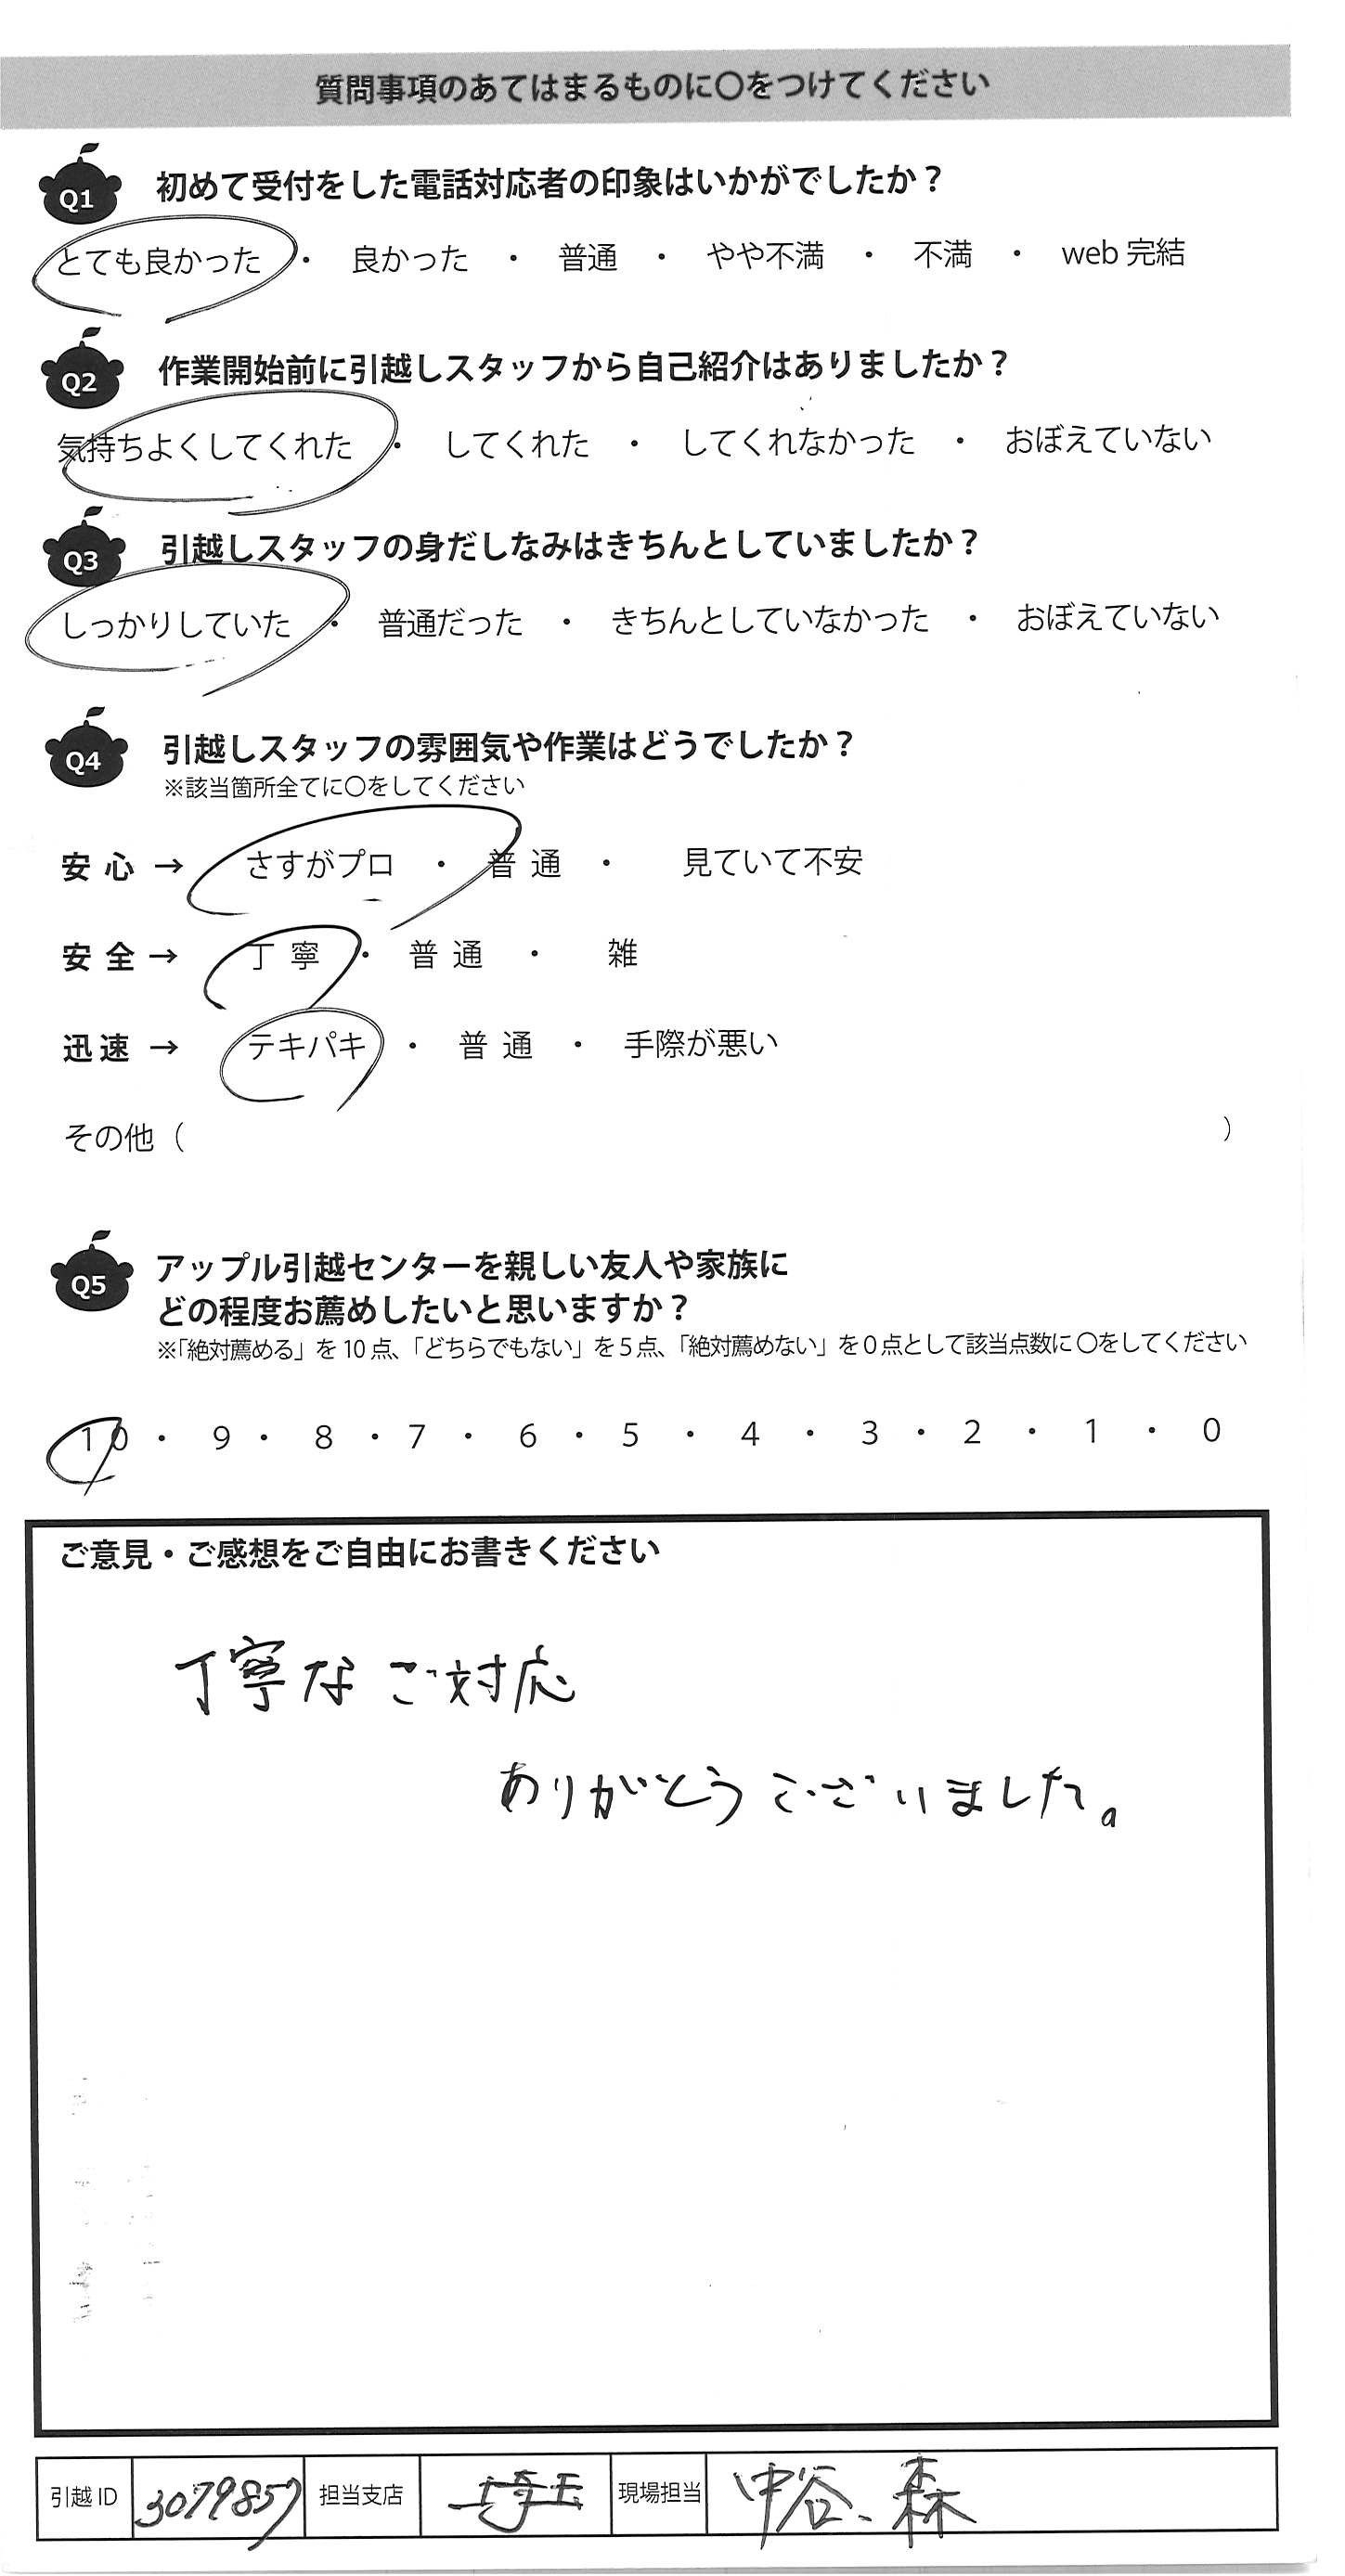 質問事項のあてはまるものに〇をつけてください
Q1 初めて受付をした電話対応者の印象はいかがでしたか？
とても良かった ・ 良かった ・ 普通 ・ やや不満 ・ 不満 ・ web 完結
Q2 作業開始前に引越しスタッフから自己紹介はありましたか？
気持ちよくしてくれた ・ してくれた ・ してくれなかった ・ おぼえていない
Q3 引越しスタッフの身だしなみはきちんとしていましたか？
しっかりしていた ・ 普通だった ・ きちんとしていなかった ・ おぼえていない
Q4 引越しスタッフの雰囲気や作業はどうでしたか？
※該当箇所全てに〇をしてください
安心 → さすがプロ ・ 普通 ・ 見ていて不安
安全 → 丁寧 ・ 普通 ・ 雑
迅速 → テキパキ ・ 普通 ・ 手際が悪い
その他（ ）
Q5 アップル引越センターを親しい友人や家族に
どの程度お薦めしたいと思いますか？
※「絶対薦める」を 10 点、「どちらでもない」を 5 点、「絶対薦めない」を 0 点として該当点数に 〇をしてください
10 ・ 9 ・ 8 ・ 7 ・ 6 ・ 5 ・ 4 ・ 3 ・ 2 ・ 1 ・ 0
ご意見・ご感想をご自由にお書きください
丁寧なご対応
ありがとうございました。
引越 ID 3079857 担当支店 埼玉 現場担当 中谷、森